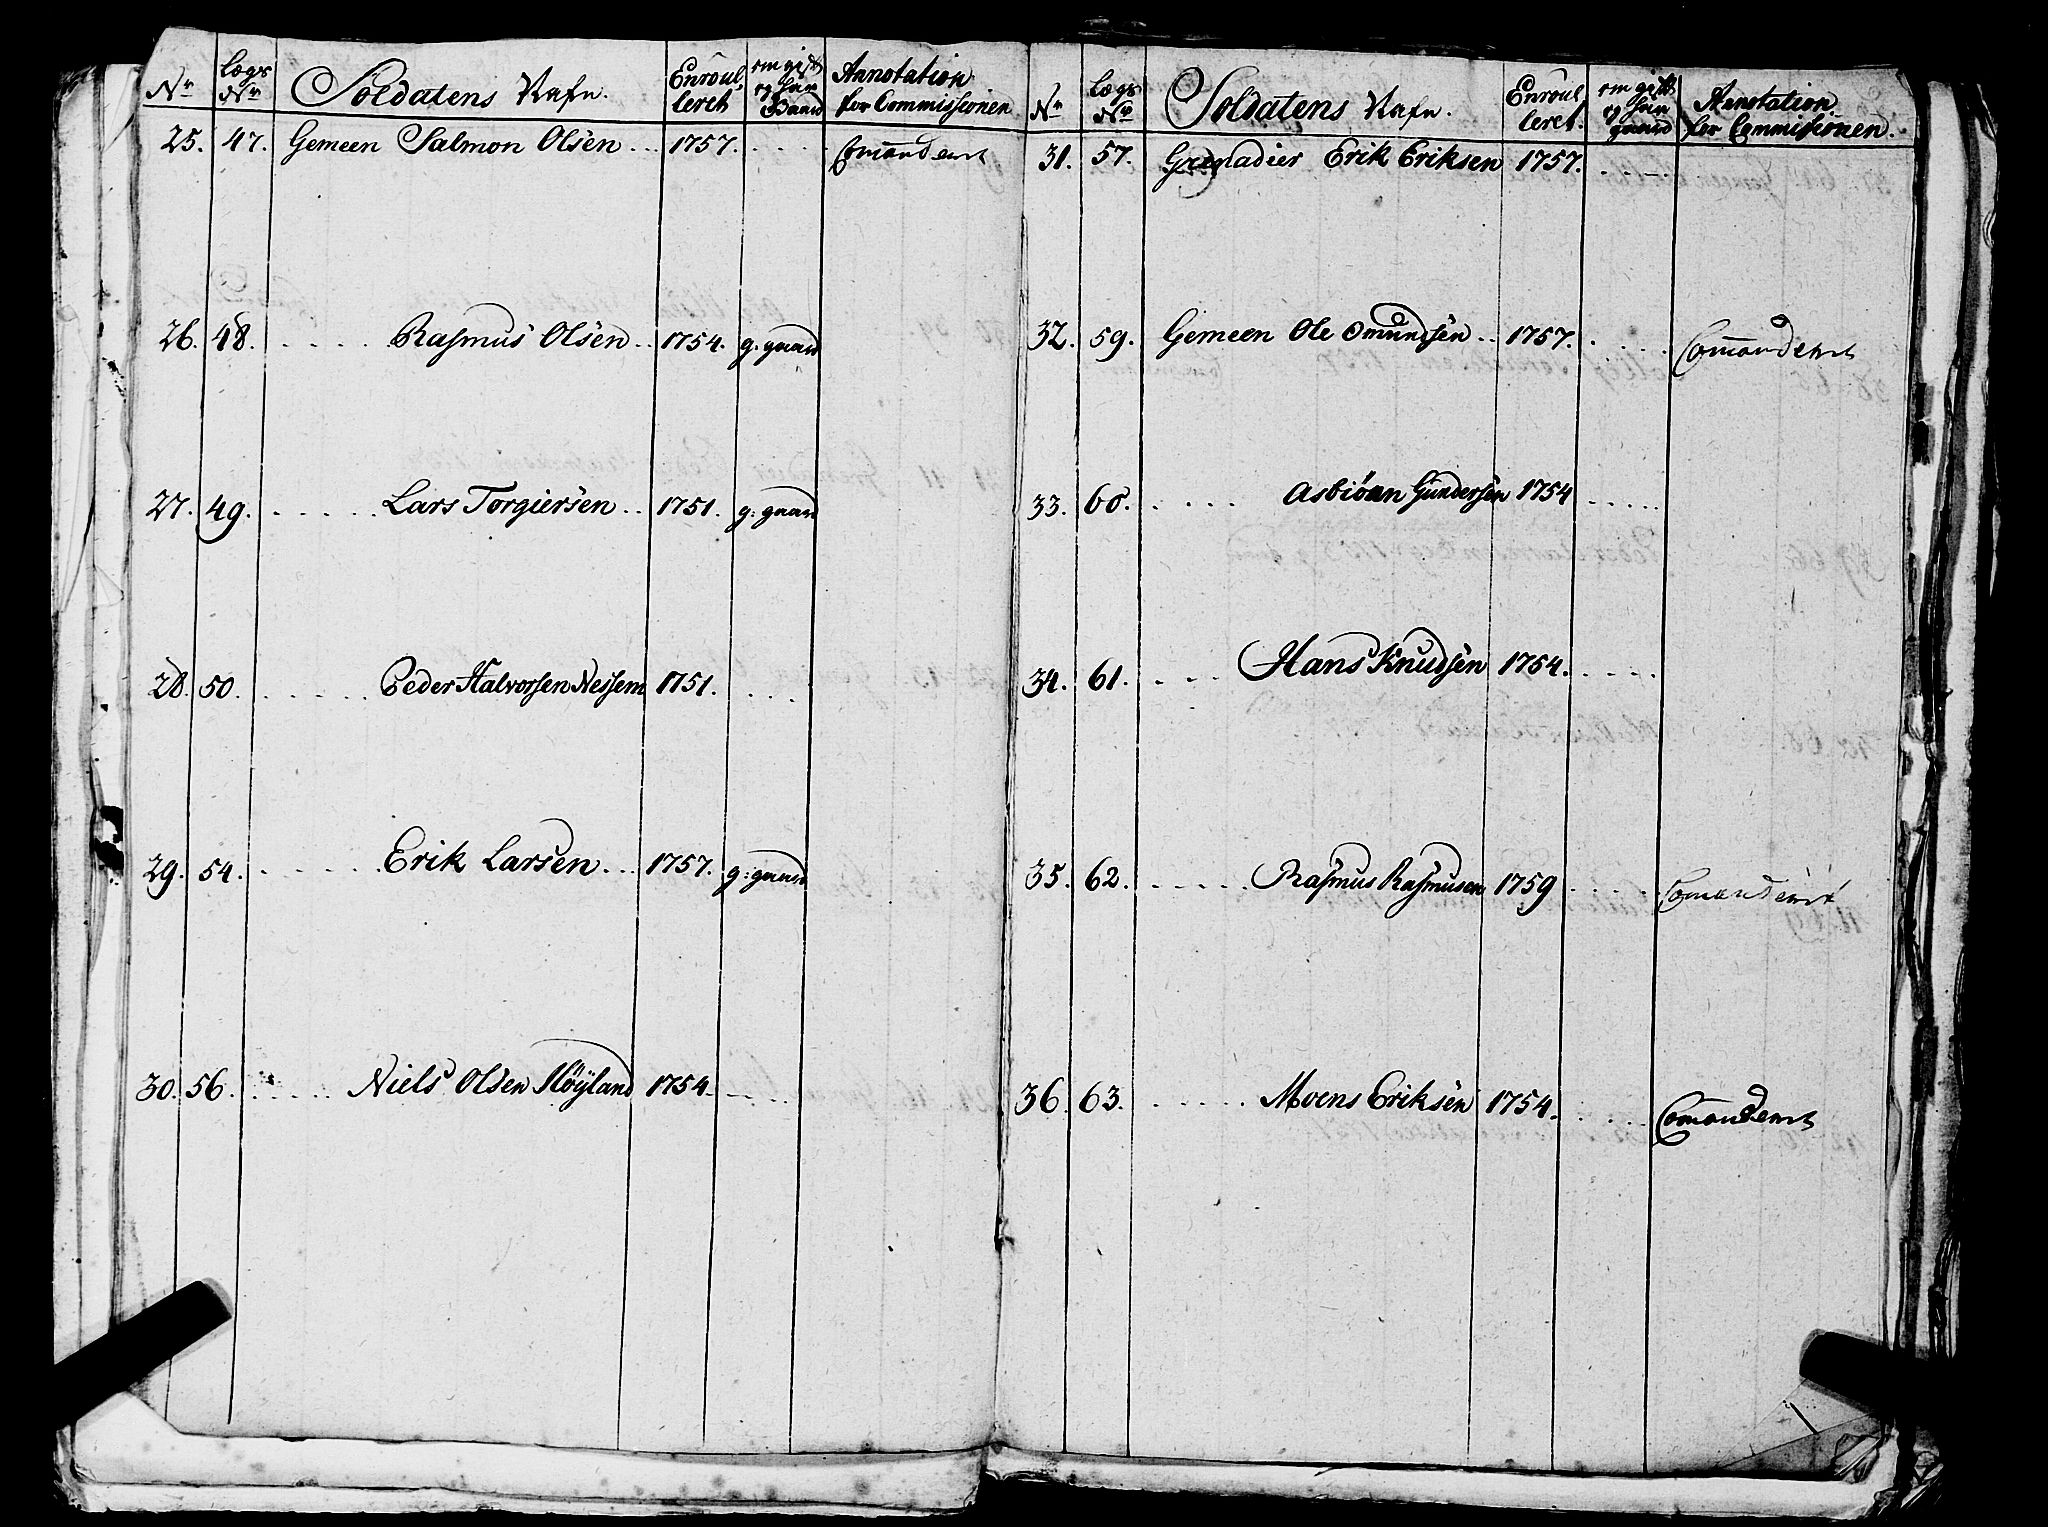 Nr Lægs Nr Soldatens Nafn. Enroul leret om gift og har Gaard Annotation for Commissionen
25. 47. Gemeen Salmon Olsen .. 1757. . . . . Comanderet
26. 48. . . . . . Rasmus Olsen .. 1754. g. gaard
27. 49. . . . . . Lars Torgiersen .. 1751. g: gaard
28. 50. . . . . . Peder Halvorsen Nessem 1751. . . .
29. 54. . . . . . Erik Larsen ... 1757. g: gaard
30. 56. . . . . . Niels Olsen Höyland 1754. . . .
Nr Lægs Nr Soldatens Nafn. Enroul leret. om gift og har gaard Annotation for Commissionen.
31. 57. Grenadier Erik Eriksen 1757. . . . .
32. 59. Gemeen Ole Omundsen .. 1757. . . . . Comanderet
33. 60. . . . . Asbiörn Gundersen 1754 . . . . .
34. 61. . . . Hans Knudsen 1754. . . . .
35. 62. . . . . . Rasmus Rasmusen 1759 . . . . . Comanderet
36. 63. . . . . . Moens Eriksen 1754. . . . . Comanderet